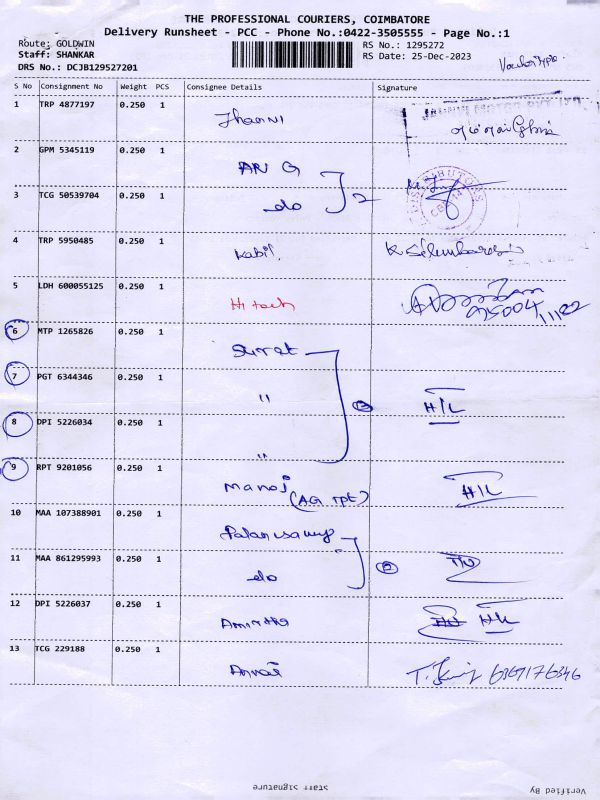 THE PROFESSIONAL COURIERS, COIMBATORE
Delivery Runsheet - PCC - Phone No.:0422-3505555 - Page No.:1
Route: GOLDWIN
Staff: SHANKAR
DRS No.: DCJB129527201
RS No.: 1295272
RS Date: 25-Dec-2023
S No Consignment No Weight PCS Consignee Details Signature
1 TRP 4877197 0.250 1
2 GPM 5345119 0.250 1 AN G
3 TCG 50539704 0.250 1 do 2
4 TRP 5950485 0.250 1 Kabil
5 LDH 600055125 0.250 1 Hi tech
6 MTP 1265826 0.250 1 Surat
7 PGT 6344346 0.250 1 " H/L
8 DPI 5226034 0.250 1 "
9 RPT 9201056 0.250 1 Manoj (AG TPT) H/L
10 MAA 107388901 0.250 1 Palanisamy
11 MAA 861295993 0.250 1 do
12 DPI 5226037 0.250 1 Amirtha H/L
13 TCG 229188 0.250 1 6369176346
Staff Signature
Verified By